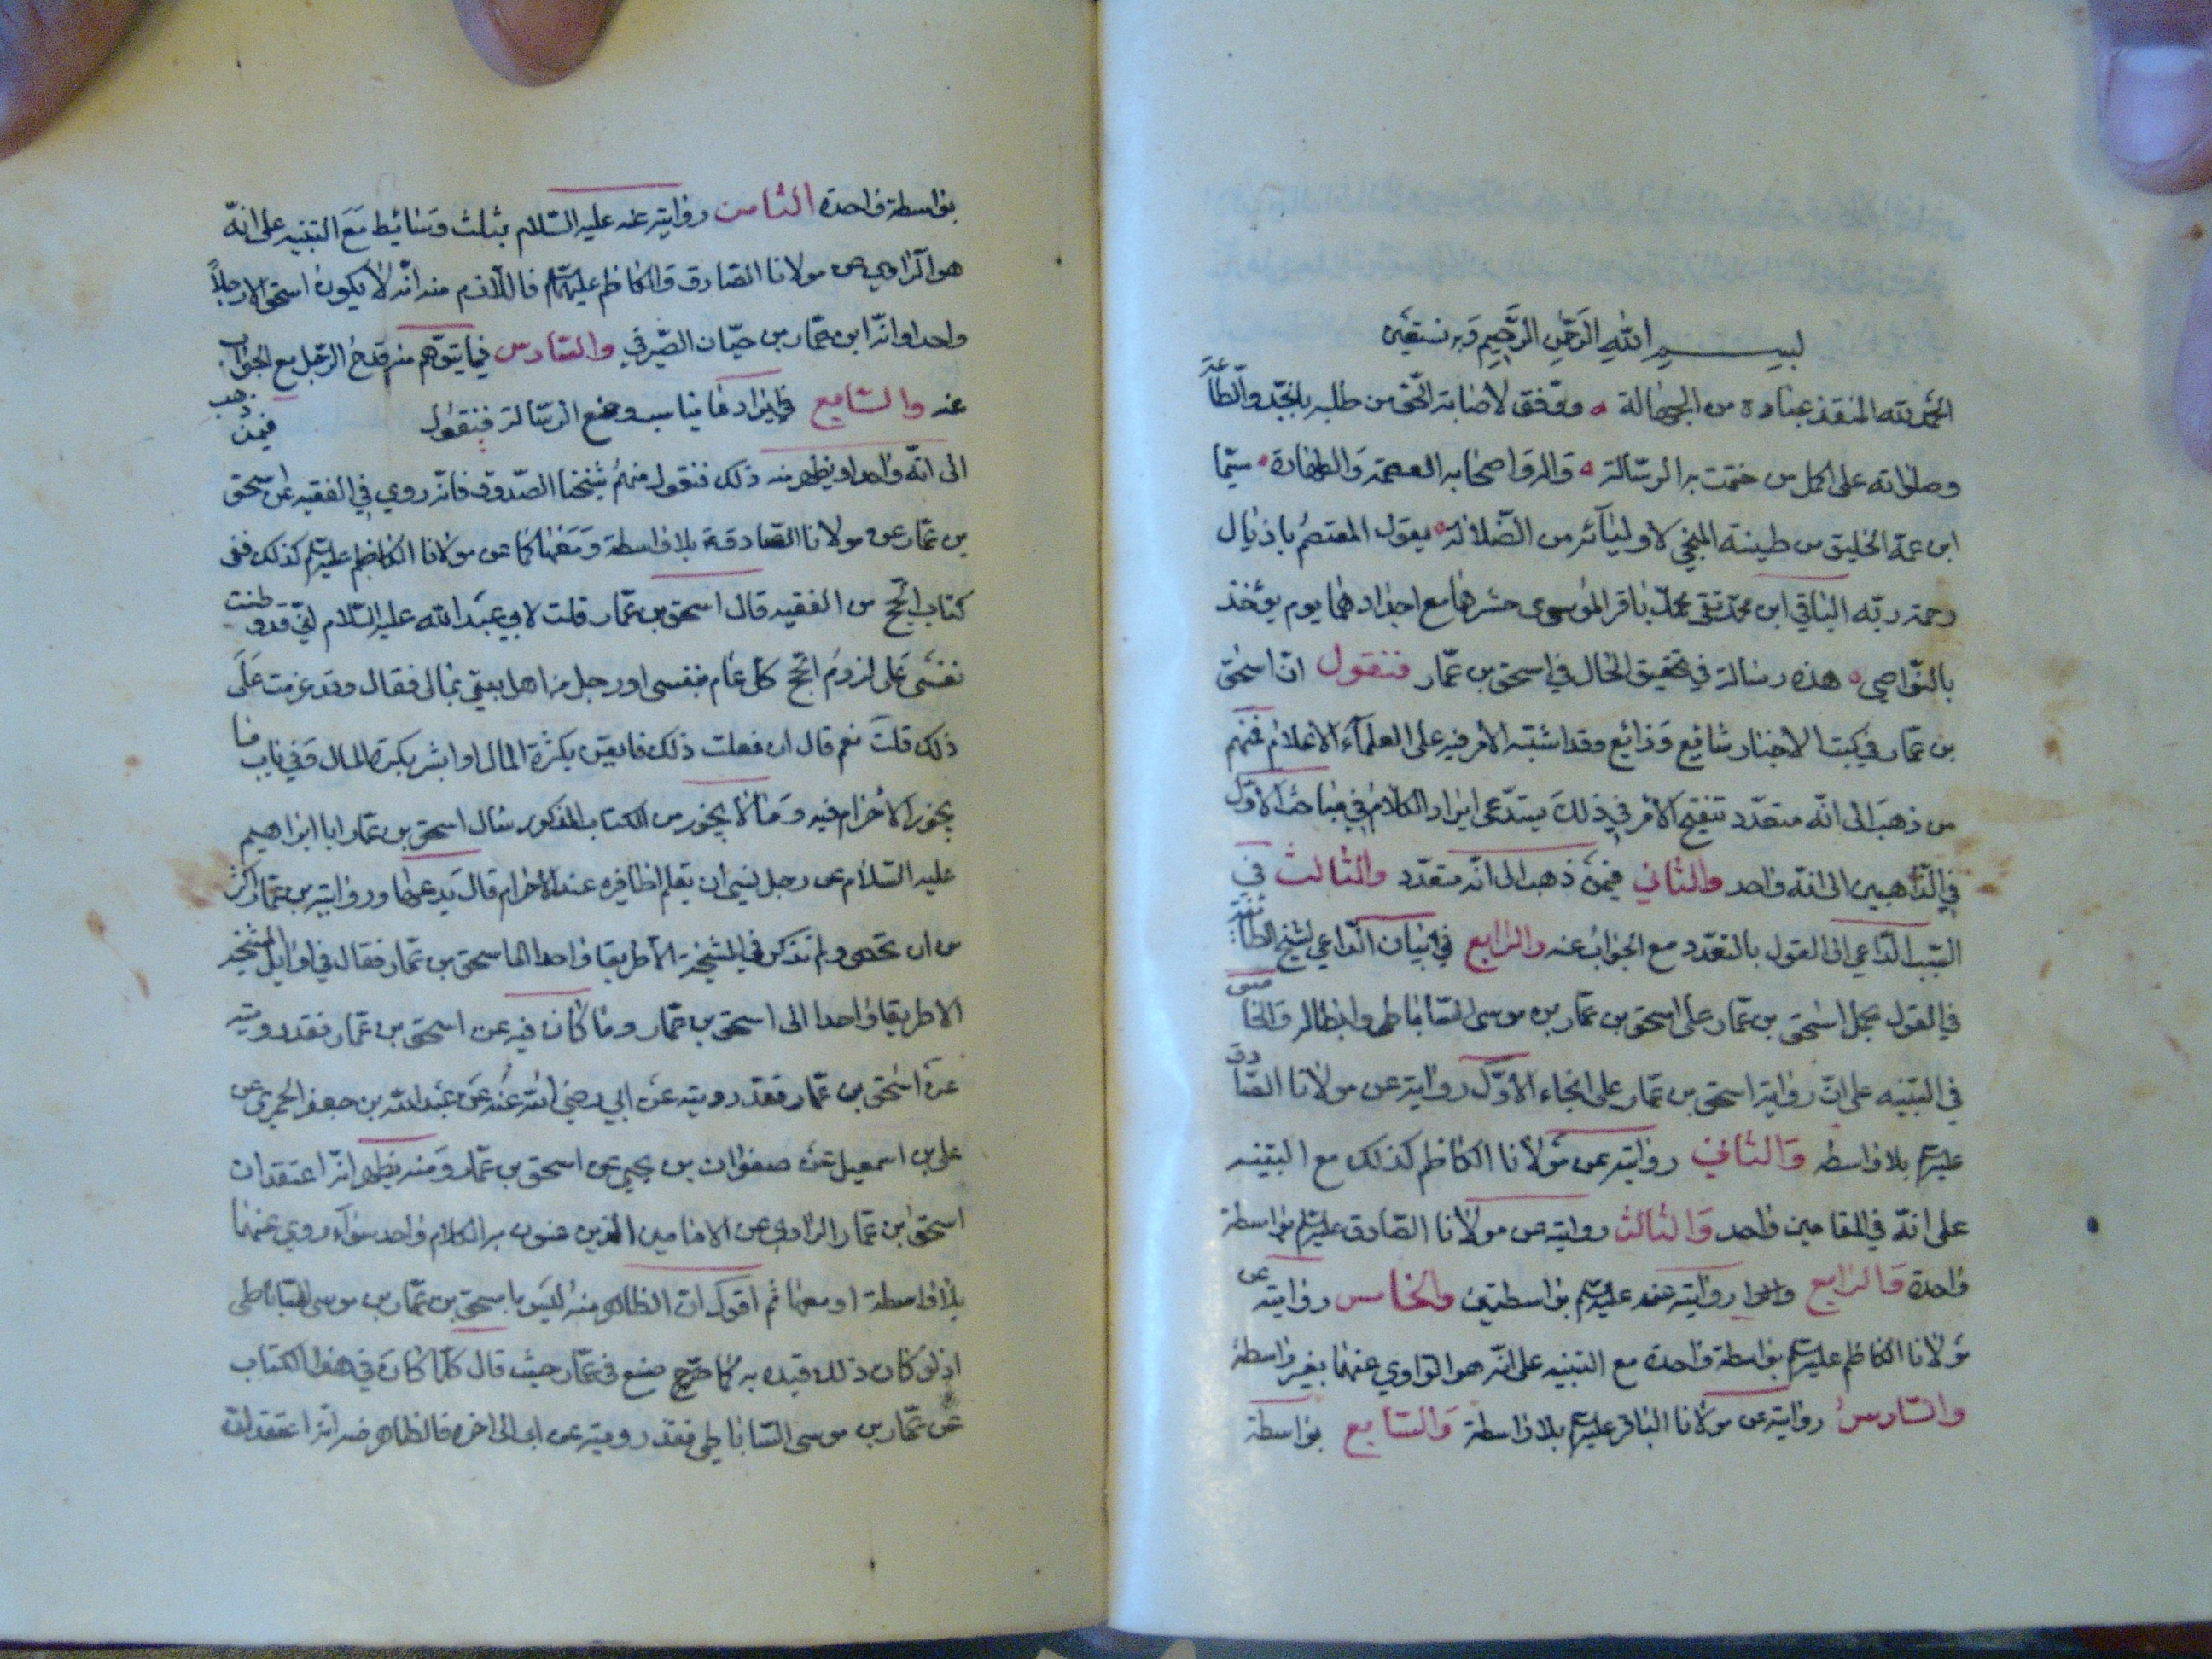 بسم الله الرحمن الرحيم وبه نستعين
الحمد لله المنقذ عباده من الجهالة وموفق لاصابة الحق من طلبه بالجد والطاعة
وصلواته على اكمل من ختمت به الرسالة واله واصحابه العصمة والطهارة سيما
ابن عمه الخليق من طينته المنجي لاوليائه من الضلالة يقول المعتصم باذيال
رحمة ربه الباقي ابن محمد تقي محمد باقر الموسوي حشرهما مع اجدادهما يوم يؤخذ
بالنواصي هذه رسالة في تحقيق الحال في اسحق بن عمار فنقول ان اسحق
بن عمار في كتب الاخبار شائع وذائع وقد اشتبه الامر فيه على العلماء الاعلام فمنهم
من ذهب الى انه متعدد تنقيح الامر في ذلك يستدعي ايراد الكلام في مباحث الاول
في الذاهبين الى انه واحد والثاني فيمن ذهب الى انه متعدد والثالث في
السبب الداعي الى القول بالتعدد مع الجواب عنه والرابع في بيان الداعي لشيخ الطائفة
في القول بحمل اسحق بن عمار على اسحق بن عمار بن موسى الساباطي وابطاله والخامس
في التنبيه على ان رواية اسحق بن عمار على انحاء الاول روايته عن مولانا الصادق
عليه السلم بلا واسطه والثاني روايته عن مولانا الكاظم كذلك مع التنبيه
على انه في المقامين واحد والثالث روايته عن مولانا الصادق عليه السلم بواسطة
واحدة والرابع روايته عنه عليه السلم بواسطتين والخامس روايته عن
مولانا الكاظم عليه السلم بواسطة واحدة مع التنبيه على انه هو الراوي عنهما بغير واسطة
والسادس روايته عن مولانا الباقر عليه السلم بلا واسطة والسابع بواسطة
بواسطة واحدة الثامن روايته عنه عليه السلام بثلث وسائط مع التنبيه على انه
هو الراوي عن مولانا الصادق والكاظم عليهما السلم فاللازم منه انه لا يكون اسحق الا رجلاً
واحدا وانه ابن عمار بن حيان الصيرفي والسادس فيما يتوهم منه قدح الرجل مع الجواب
عنه والسابع في ايراد ما يناسب وضع الرسالة فنقول فيمن ذهب
الى انه واحد او يظهر منه ذلك فنقول منهم شيخنا الصدوق فانه روى في الفقيه عن اسحق
بن عمار عن مولانا الصادق بلا واسطة ومعها كما عن مولانا الكاظم عليه السلم كذلك ففى
كتاب الحج من الفقيه قال اسحق بن عمار قلت لابي عبد الله عليه السلام اني قد وطنت
نفسى على لزوم الحج كل عام بنفسى او رجل من اهل بيتى بمالى فقال وقد عزمت على
ذلك قلت نعم قال ان فعلت ذلك فايقن بكثرة المال او ابشر بكثرة المال وفي باب ما
يجوز الاحرام فيه وما لا يجوز من الكتاب المذكور سأل اسحق بن عمار ابا ابراهيم
عليه السلام عن رجل نسي ان يقلم اظافيره عند الاحرام قال يدعها وروايته بن عمار اكثر
من ان تحصى ولم تذكر في المشيخة الا طريقا واحدا الى اسحق بن عمار فقال في اوايل المشيخة
الا طريقا واحدا الى اسحق بن عمار وما كان فيه عن اسحق بن عمار فقد رويته
عن اسحق بن عمار فقد رويته عن ابي رضي الله عنه عن عبد الله بن جعفر الحميري عن
على بن اسمعيل عن صفوان بن يحيى عن اسحق بن عمار ومنه يظهر انه اعتقد ان
اسحق بن عمار الراوي عن الامامين الذين عنون به الكلام واحد سواء روي عنهما
بلا واسطة او معها ثم اقول ان الظاهر منه ليس باسحق بن عمار بن موسى الساباطي
اذ لو كان ذلك قيده به كما صنع في عمار حيث قال كلما كان في هذا الكتاب
عن عمار بن موسى الساباطي فقد رويته عن ابى الى اخره فالظاهر منه انه اعتقد انه